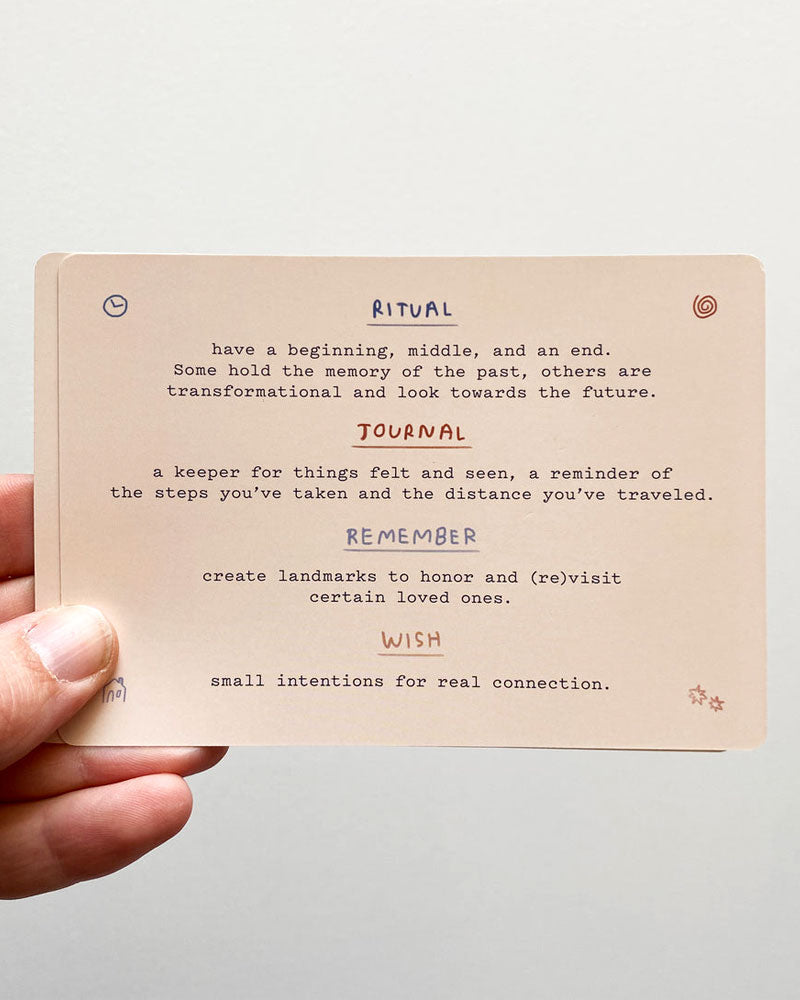 RITUAL
have a beginning, middle, and an end.
Some hold the memory of the past, others are
transformational and look towards the future.
JOURNAL
a keeper for things felt and seen, a reminder of
the steps you've taken and the distance you've traveled.
REMEMBER
create landmarks to honor and (re)visit
certain loved ones.
WISH
small intentions for real connection.